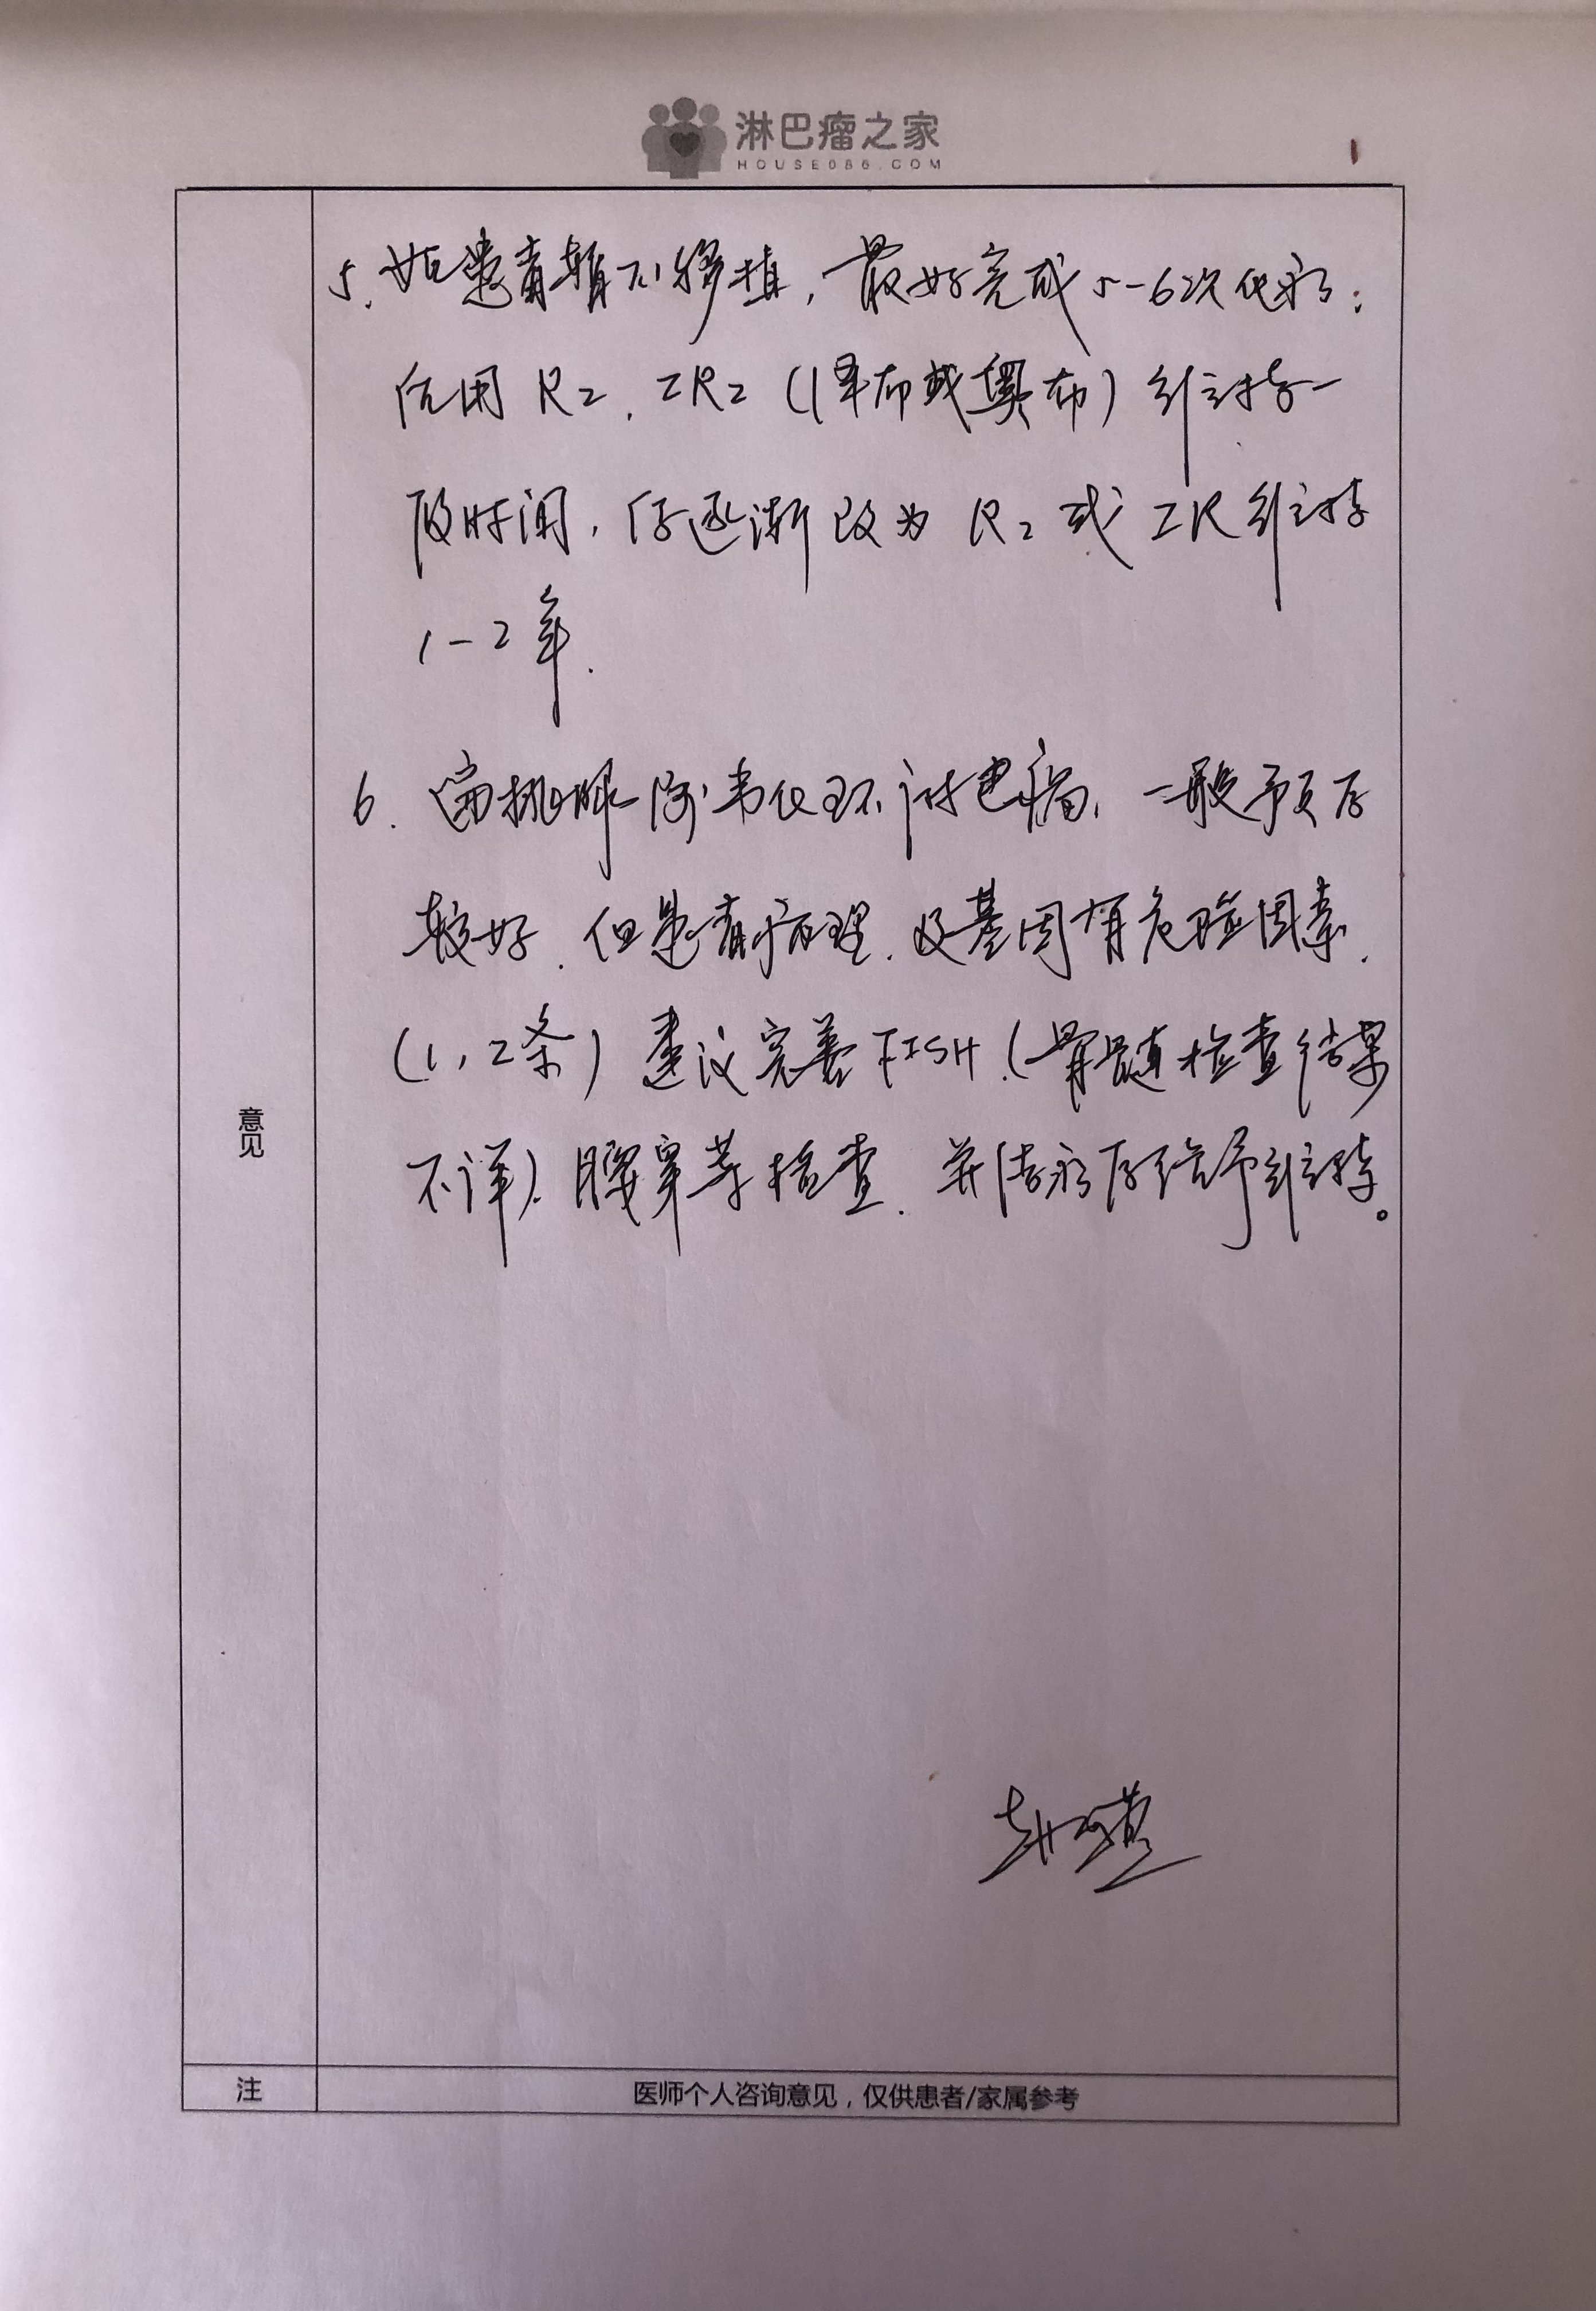 淋巴瘤之家
HOUSE086.COM
5. 如患者暂不移植，最好完成5-6次化疗；
后用R2、IR2（泽布或奥布）维持一
段时间，后逐渐改为R2或IR维持
1-2年.
6. 扁桃腺 韦氏环淋巴瘤，一般预后
较好，但患者病理、及基因有危险因素.
(1, 2条) 建议完善FISH.(骨髓检查结果
不详). 腰穿等检查. 并治疗后给予维持。
意见
注
医师个人咨询意见，仅供患者/家属参考